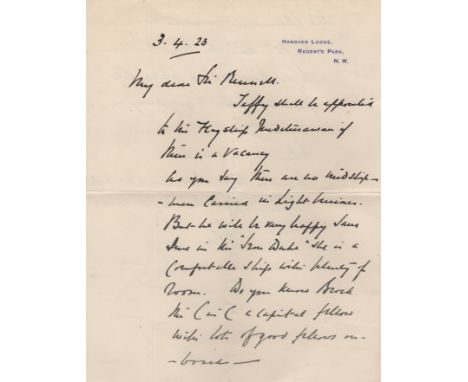 3.4.23
HANOVER LODGE,
REGENT'S PARK,
N.W.
My dear Sir Rennell.
Taffy shall be appointed
to the Flagship Mediterranean if
there is a vacancy
As you say there are no midship-
-men carried in Light Cruisers.
But he will be very happy I am
sure in the "Iron Duke" She is a
comfortable ship with plenty of
room. Do you know Brock
the C in C a capital fellow
with lots of good fellows on-